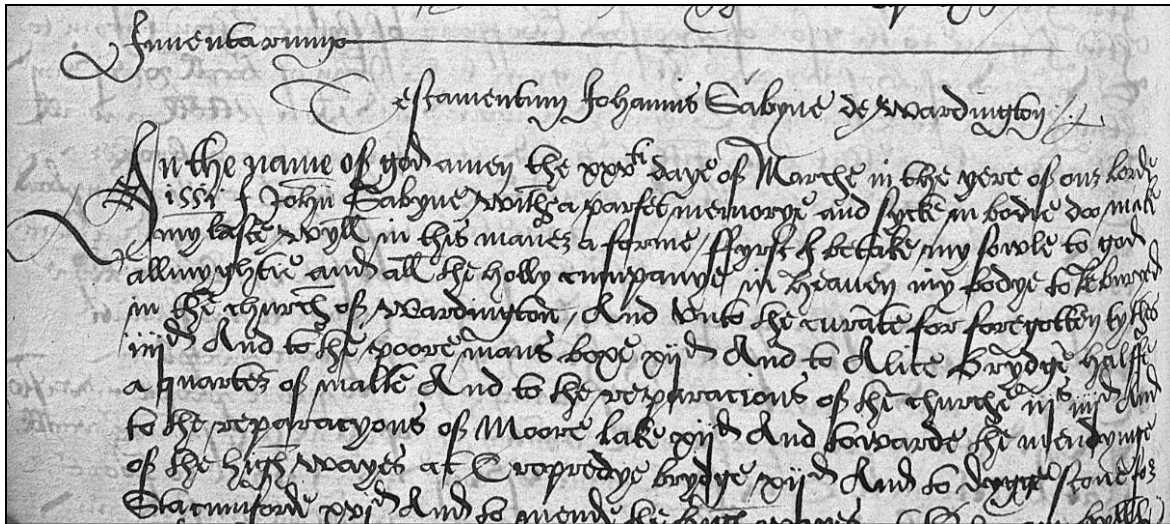 Inventarium
Testamentum Johannis Sabyne de Wardington
In the name of god amen the xxvti daye of Marche in the yere of our lorde
1551 I John Sabyne with a parfet memorye and sycke in bodie doo make
my laste wyll in this maner a forme, ffyrst I betake my sowle to god
allmyghtie and all the holly cumpanye in heaven my bodye to be buryed
in the church of Wardington, And unto the curate for foregotten tythes
iiijd And to the poore mans boxe xijd And to Alice Brydge halffe
a quarter of malte And to the reparacions of the churche iijs iiijd And
to the reparacyons of Moore lake xijd And towarde the mendynge
of the high wayes at Cropredye brydge xijd And to dygge stone for
xvjd And to mende the